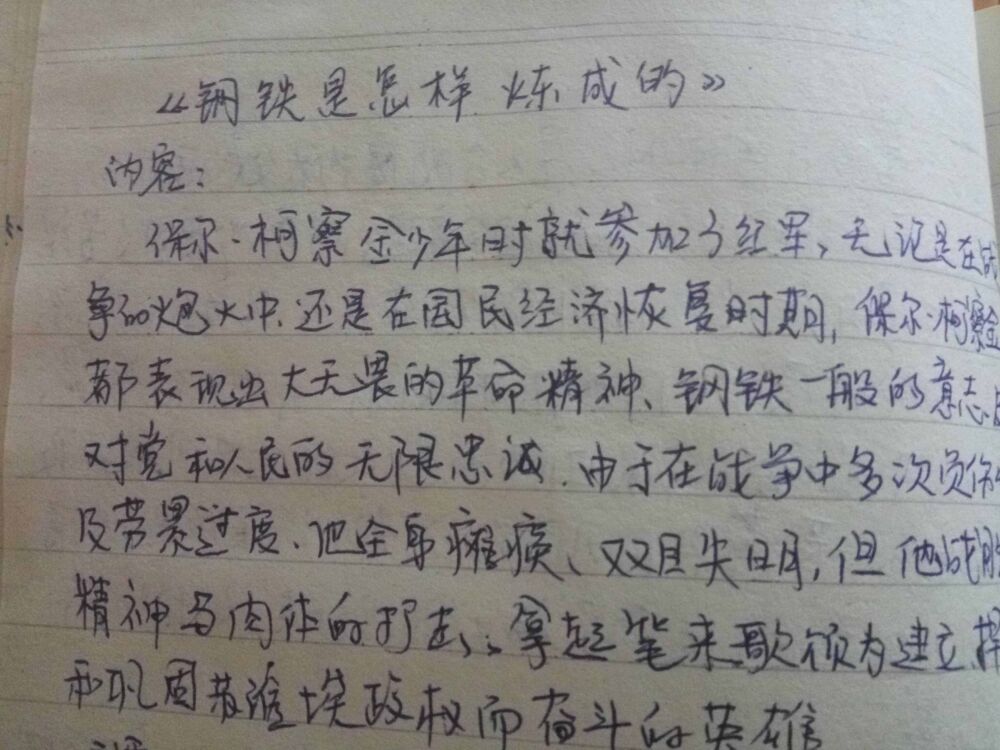 《钢铁是怎样炼成的》
内容:
保尔·柯察金少年时就参加了红军,无论是在战
争的炮火中,还是在国民经济恢复时期,保尔·柯察金
都表现出大无畏的革命精神、钢铁一般的意志
对党和人民的无限忠诚.由于在战争中多次负伤
及劳累过度、他全身瘫痪、双目失明,但他战胜
精神与肉体的打击,拿起笔来歌颂为建立
和巩固苏维埃政权而奋斗的英雄